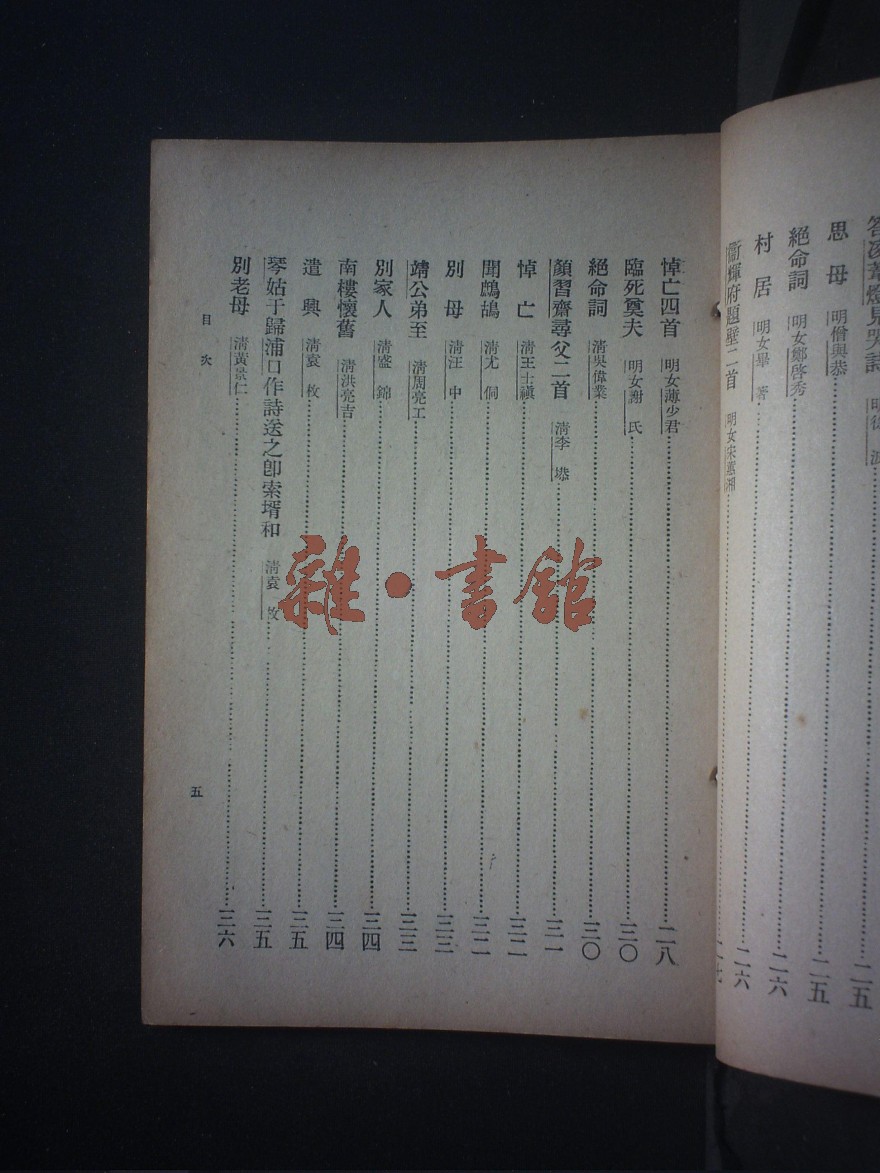 思母 明僧與恭 二五
絕命詞 明女鄭啓秀 二五
村居 明女畢著 二六
衞輝府題壁二首 明女宋蕙湘 二六
悼亡四首 明女薄少君 二八
臨死奠夫 明女謝氏 三〇
絕命詞 清吳偉業 三〇
顏習齋尋父二首 清李塨 三一
悼亡 清王士禛 三二
聞鷓鴣 清尤侗 三二
別母 清汪中 三三
靖公弟至 清周亮工 三三
別家人 清盛錦 三四
南樓懷舊 清洪亮吉 三四
遣興 清袁枚 三五
琴姑于歸浦口作詩送之卽索壻和 清袁枚 三五
別老母 清黃景仁 三六
目次 五
雜·書館